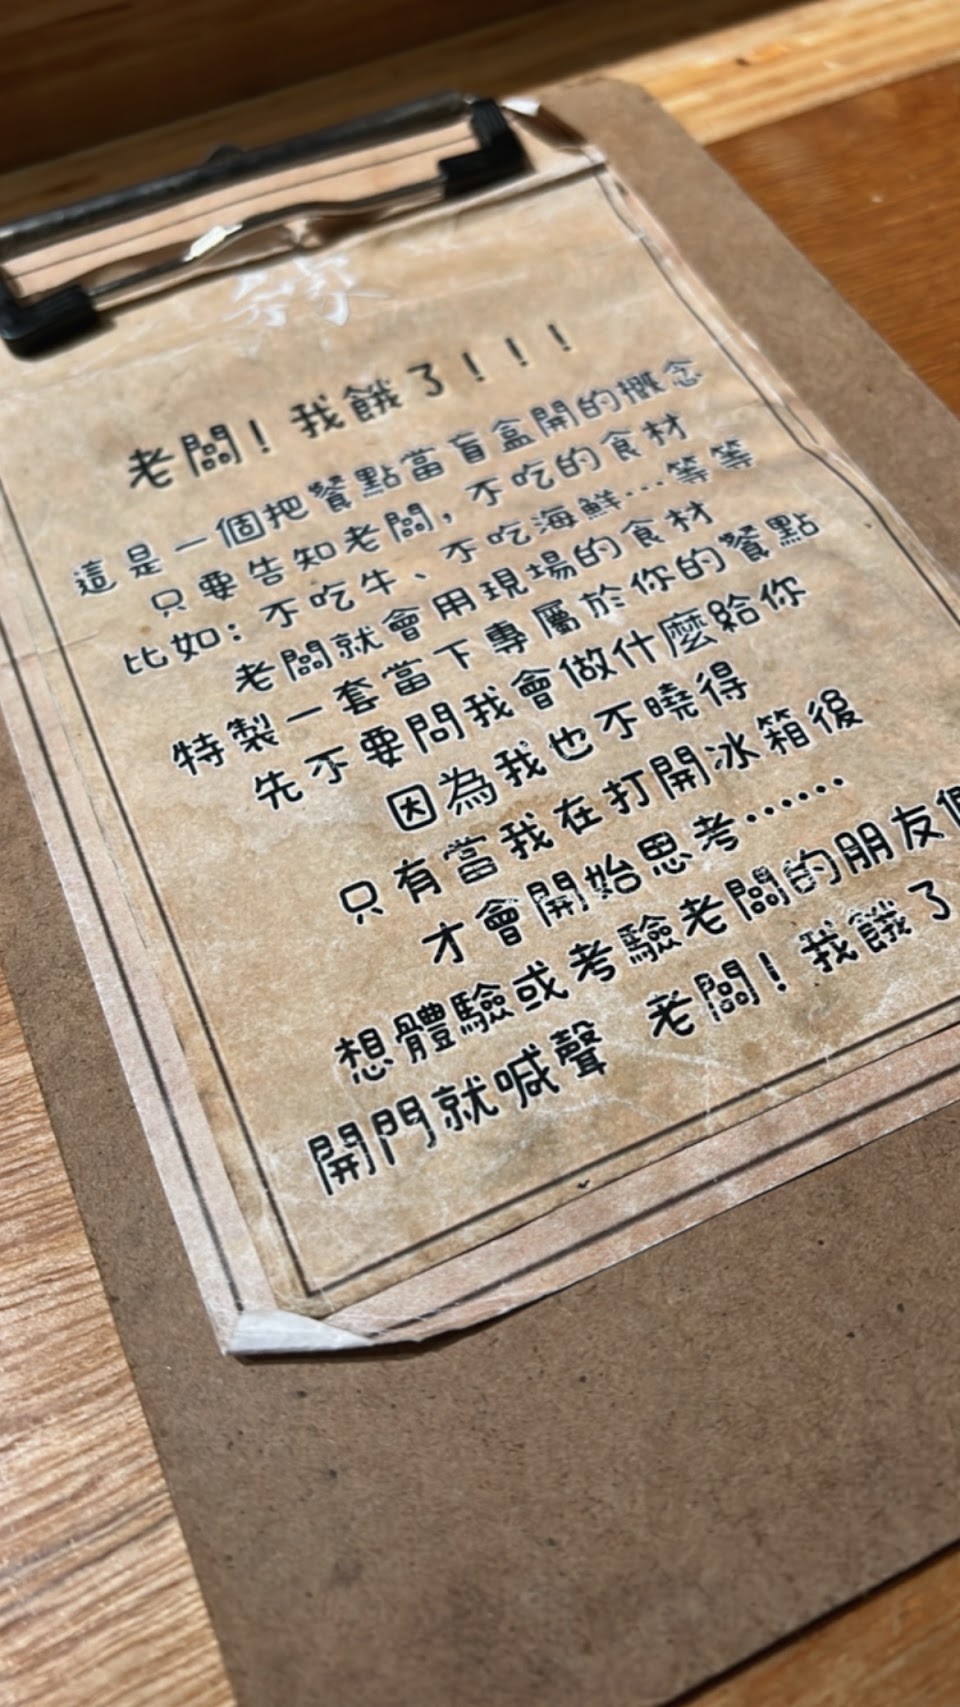 老闆！我餓了！！！
這是一個把餐點當盲盒開的概念
只要告知老闆，不吃的食材
比如：不吃牛、不吃海鮮…等等
老闆就會用現場的食材
特製一套當下專屬於你的餐點
先不要問我會做什麼給你
因為我也不曉得
只有當我在打開冰箱後
才會開始思考……
想體驗或考驗老闆的朋友們
開門就喊聲 老闆！我餓了